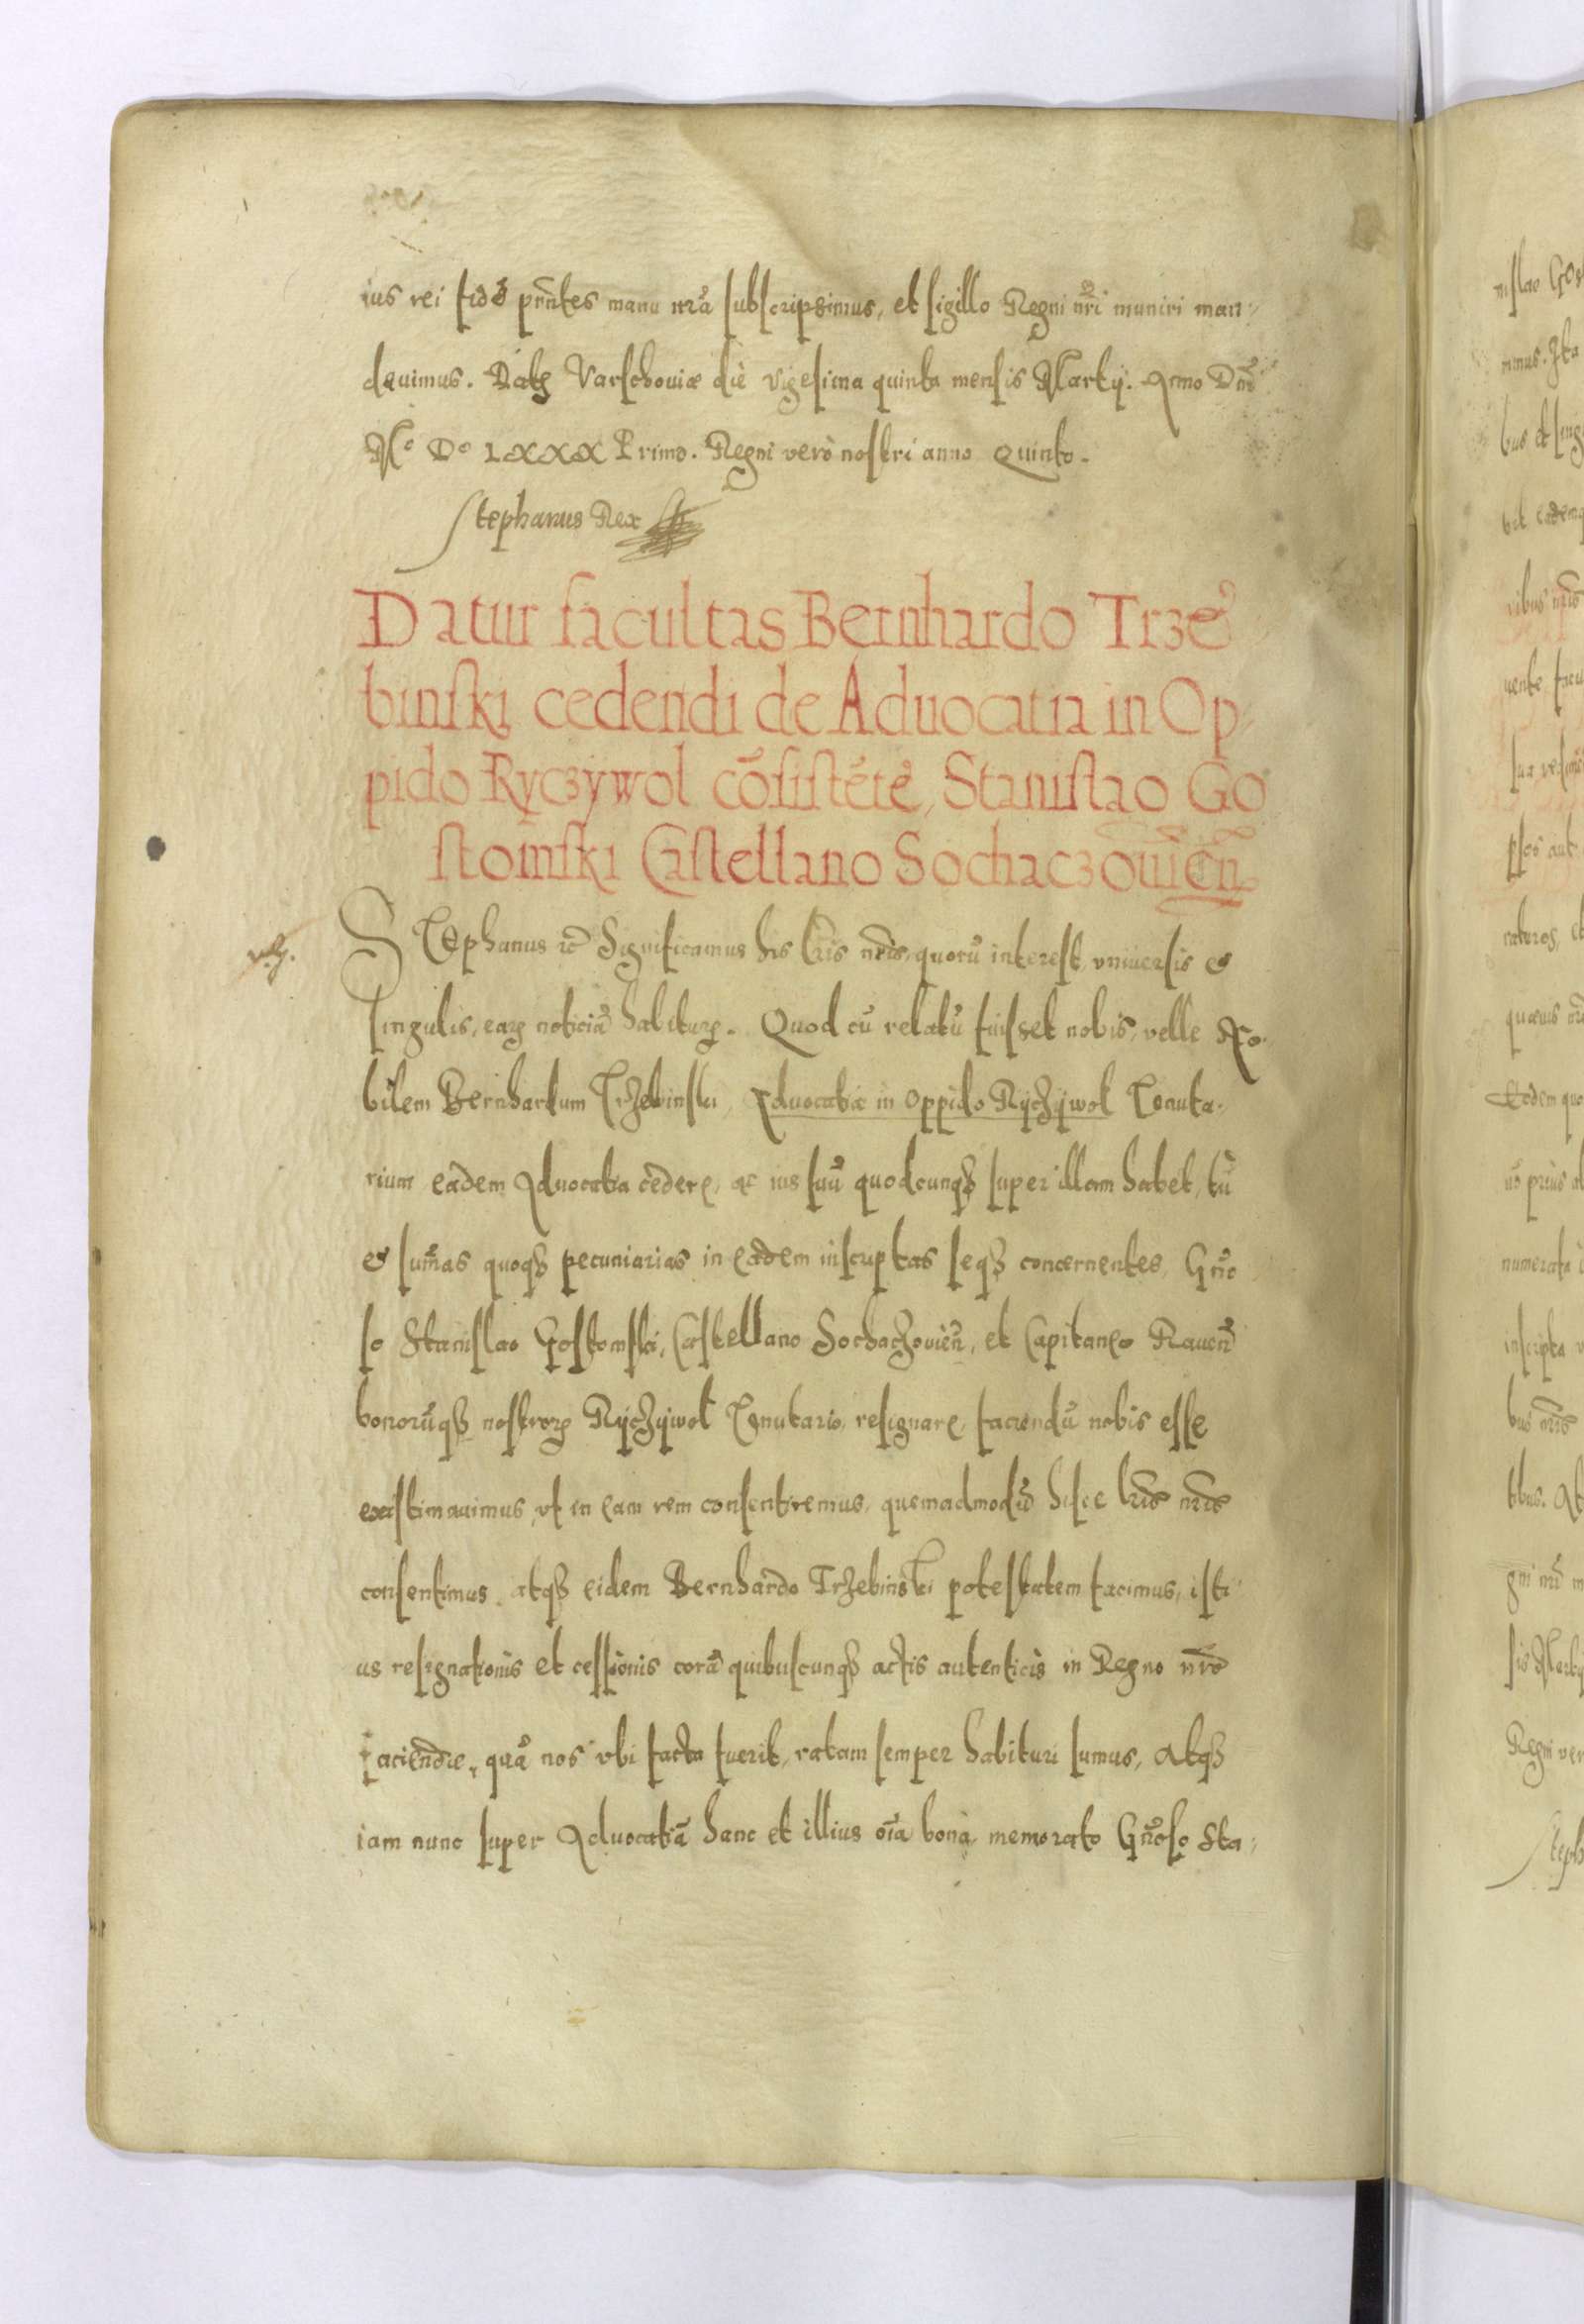 ius rei fidē prn̄tes manu nr̄a subscripsimus, et sigillo Regni nr̄i muniri man-
dauimus. Datꝫ Varschouiæ die vigesima quinta mensis Martij. Anno Dn̄i
Mo Do LXXX Primo. Regni verò nostri anno Quinto.
Stephanus Rex
Datur facultas Bernhardo Trze
binski cedendi de Aduocatia in Op-
pido Ryczywol cōsistēte, Stanislao Go
stomski Castellano Sochaczouien̄
Stephanus etc̄ Significamus his lr̄is nr̄is, quorū interest, vniuersis et
singulis, earꝝ noticiā habiturꝭ. Quod cū relatū fuisset nobis, velle No-
bilem Bernhardum Trzebinski, Aduocatiæ in oppido Ryczywol Tenuta-
rium eadem Aduocatia cedere, ac ius suū quodcunqꝫ super illam habet, tū
et sum̄as quoqꝫ pecuniarias in eadem inscriptas seqꝫ concernentes, Gn̄o
so Stanislao Gostomski, Castellano Sochaczouien̄, et Capitaneo Rauen̄
bonorūqꝫ nostrorꝝ Ryczywol Tenutario, resignare, faciendū nobis esse
existimauimus, vt in eam rem consentiremus, quemadmodū hisce lr̄is nr̄is
consentimus, atqꝫ eidem Bernhardo Trzebinski potestatem facimus, isti
us resignationis et cessionis corā quibuscunqꝫ actis autenticis in Regno nr̄o
faciendæ, quā nos vbi facta fuerit, ratam semper habituri sumus, Atqꝫ
iam nunc super Aduocatiā hanc et illius oīa bona, memorato Gn̄oso Sta-